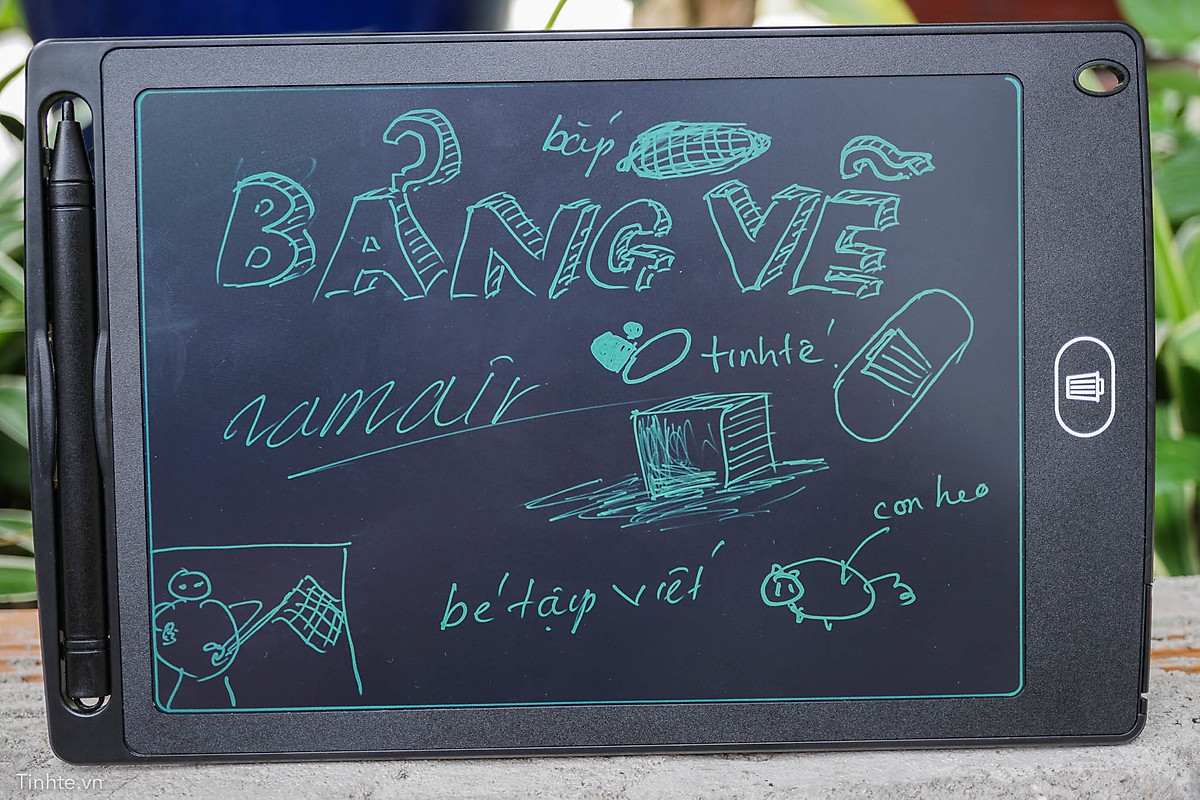 bắp
BẢNG VẼ
tinhtế!
namair
con heo
bé tập viết
Tinhte.vn